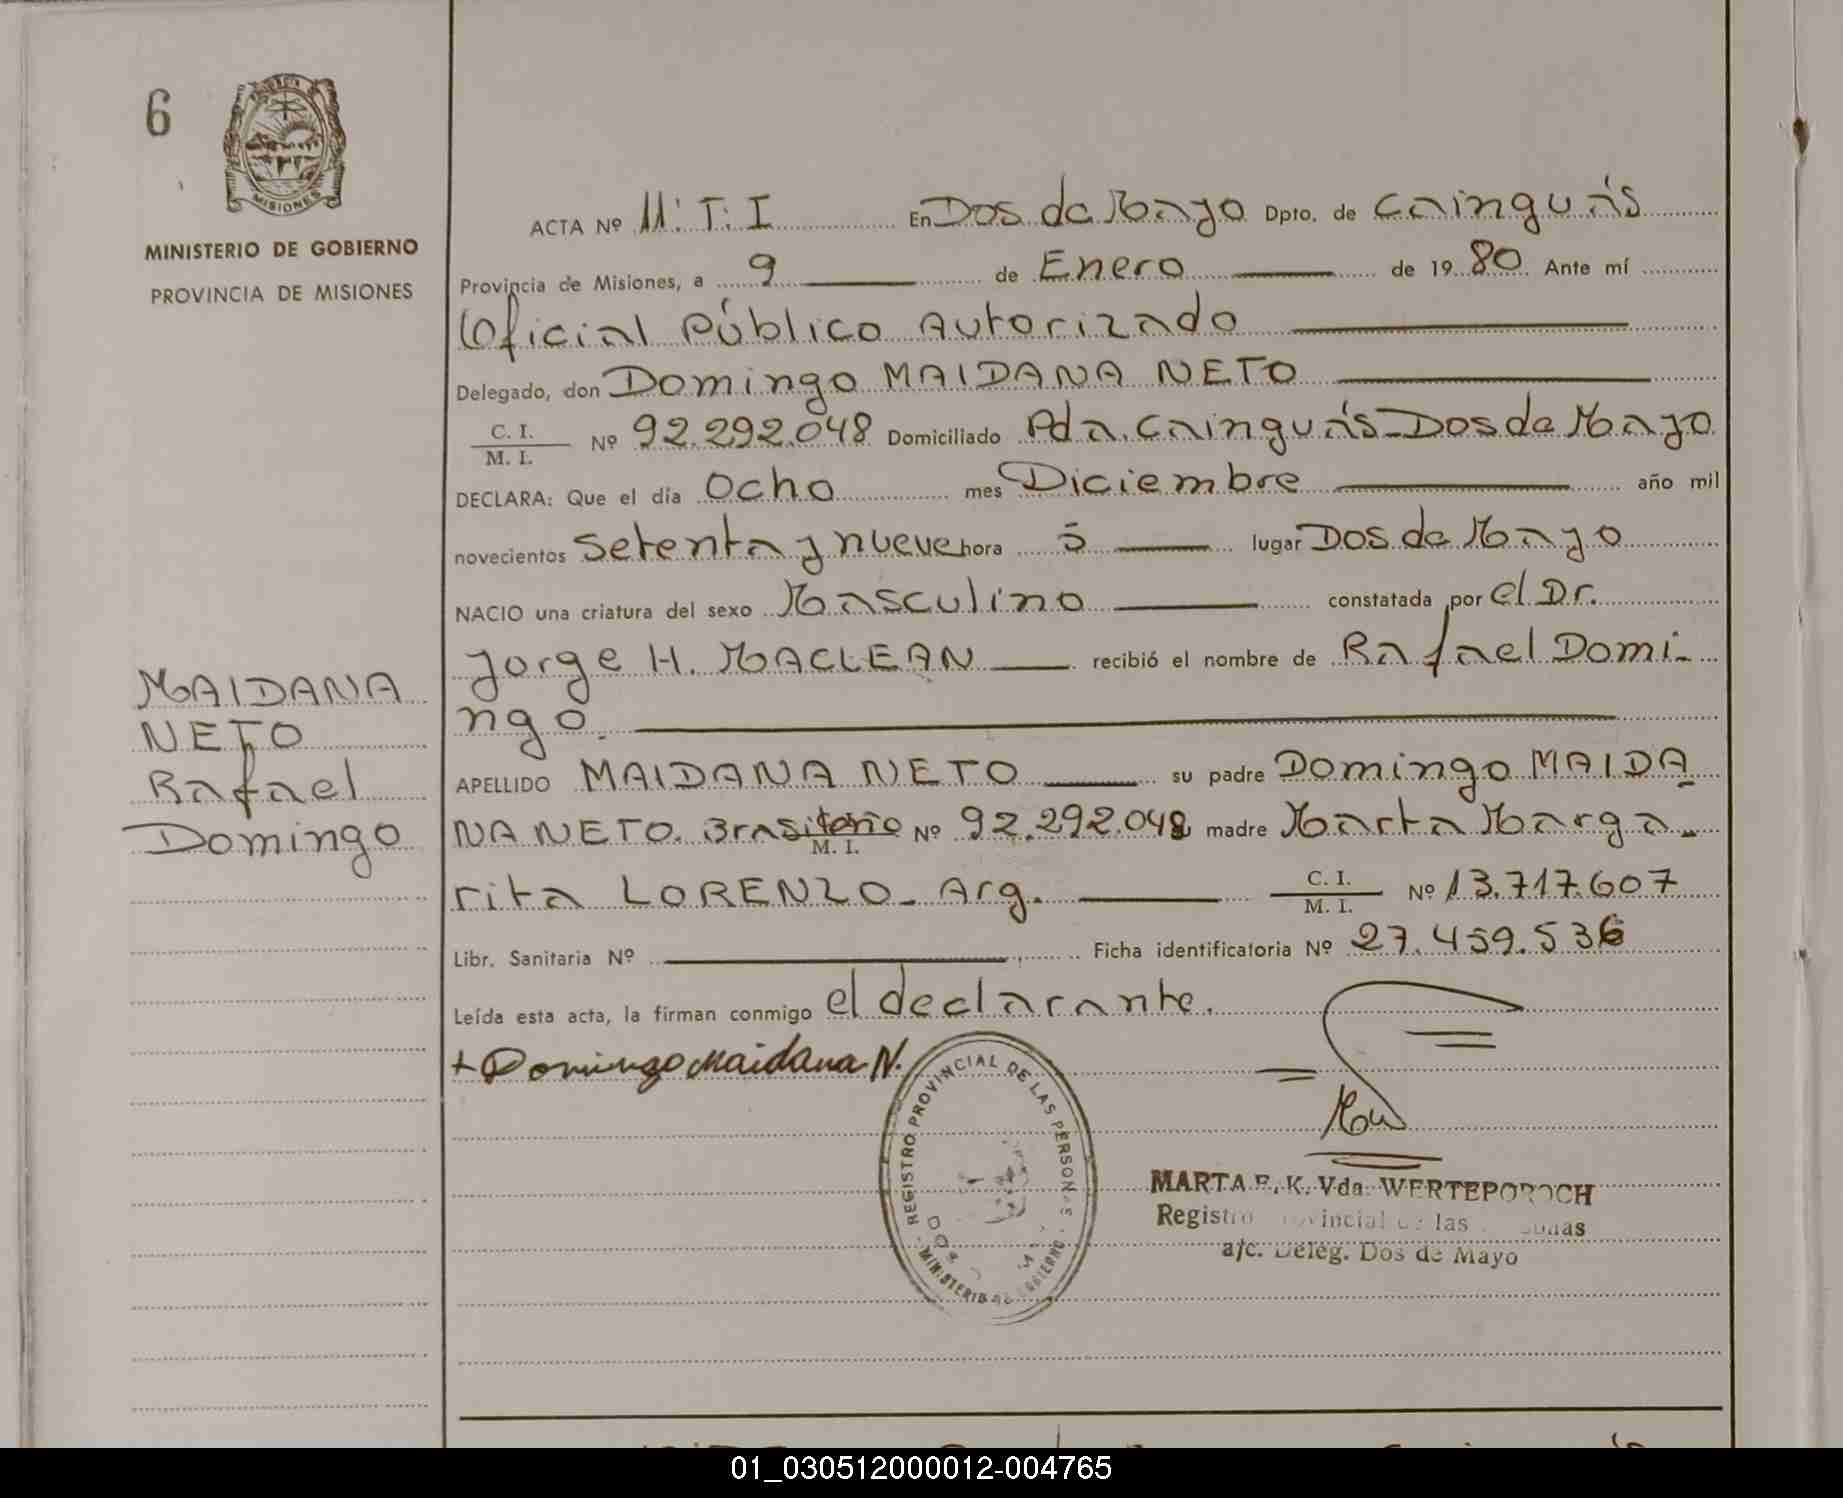 6
MISIONES
MINISTERIO DE GOBIERNO
PROVINCIA DE MISIONES
ACTA Nº 11:T:I En Dos de Mayo Dpto. de Cainguás
Provincia de Misiones, a 9 de Enero de 1980 Ante mí
Oficial Público Autorizado
Delegado, don Domingo MAIDANA NETO
C. I.
M. I. Nº 92.292.048 Domiciliado Pda. Cainguás-Dos de Mayo
DECLARA: Que el día Ocho mes Diciembre año mil
novecientos setenta y nueve hora 5 lugar Dos de Mayo
NACIO una criatura del sexo Masculino constatada por el Dr.
Jorge H. MACLEAN recibió el nombre de Rafael Domi-
ngo.
APELLIDO MAIDANA NETO su padre Domingo MAIDA
NA NETO. Nº 92.292.048 madre Marta Marga-
M. I.
rita LORENZO- Arg. C. I.
M. I. Nº 13.717.607
Libr. Sanitaria Nº Ficha identificatoria Nº 27.459.536
Leída esta acta, la firman conmigo el declarante.
+ Domingo Maidana N.
MAIDANA
NETO
Rafael
Domingo
REGISTRO PROVINCIAL DE LAS PERSONAS
MINISTERIO DE GOBIERNO
MARTA E. K. Vda. WERTEPOROCH
Registro Provincial de las Personas
a/c. Deleg. Dos de Mayo
01_030512000012-004765